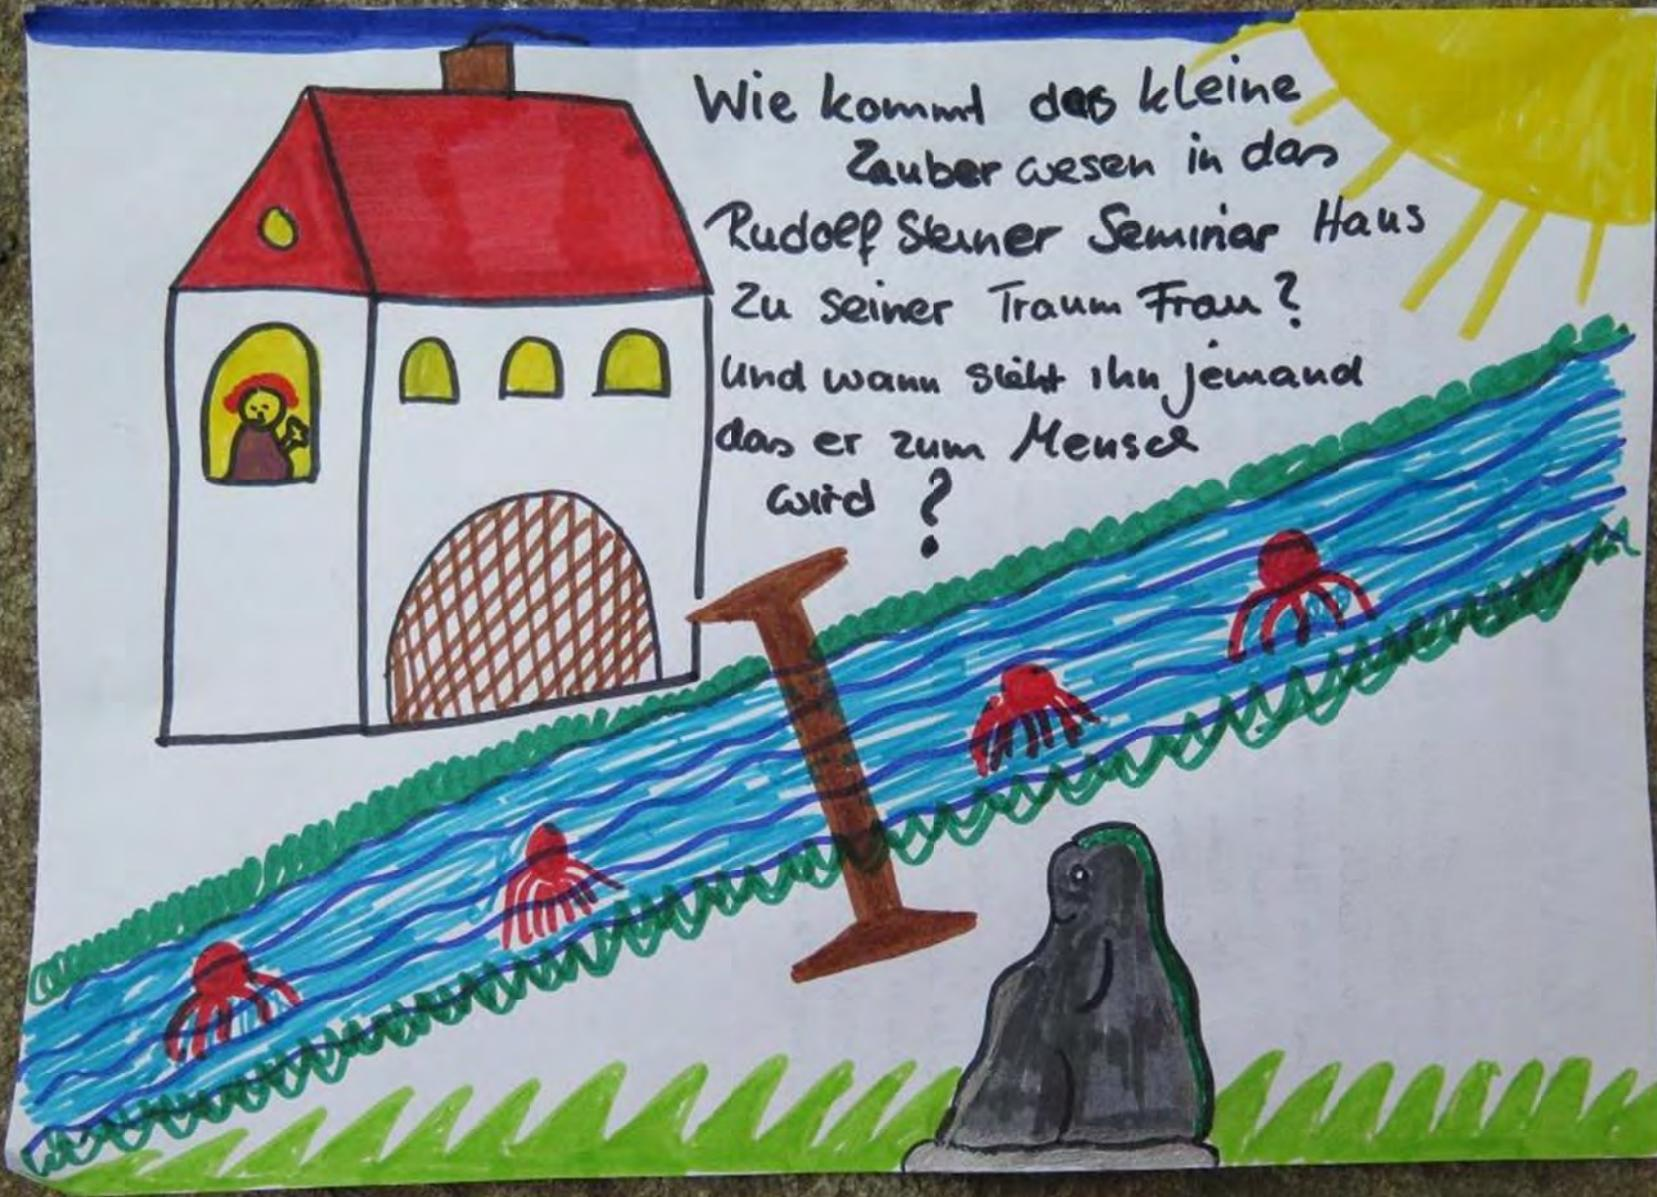 Wie kommt das kleine
Zauberwesen in das
Rudolf Steiner Seminar Haus
zu seiner Traum Frau?
Und wann sieht ihn jemand
das er zum Mensch
wird ?